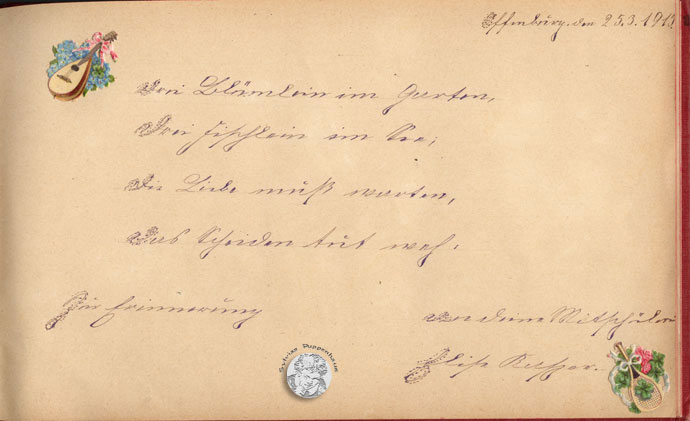 Offenburg, den 25.3.1913
Drei Blümlein im Garten,
Drei Fischlein im See;
Die Liebe muß warten,
Das Scheiden tut weh.
Zur Erinnerung
an deine Mitschülerin
Elise
Sabrinas Puppenhaus